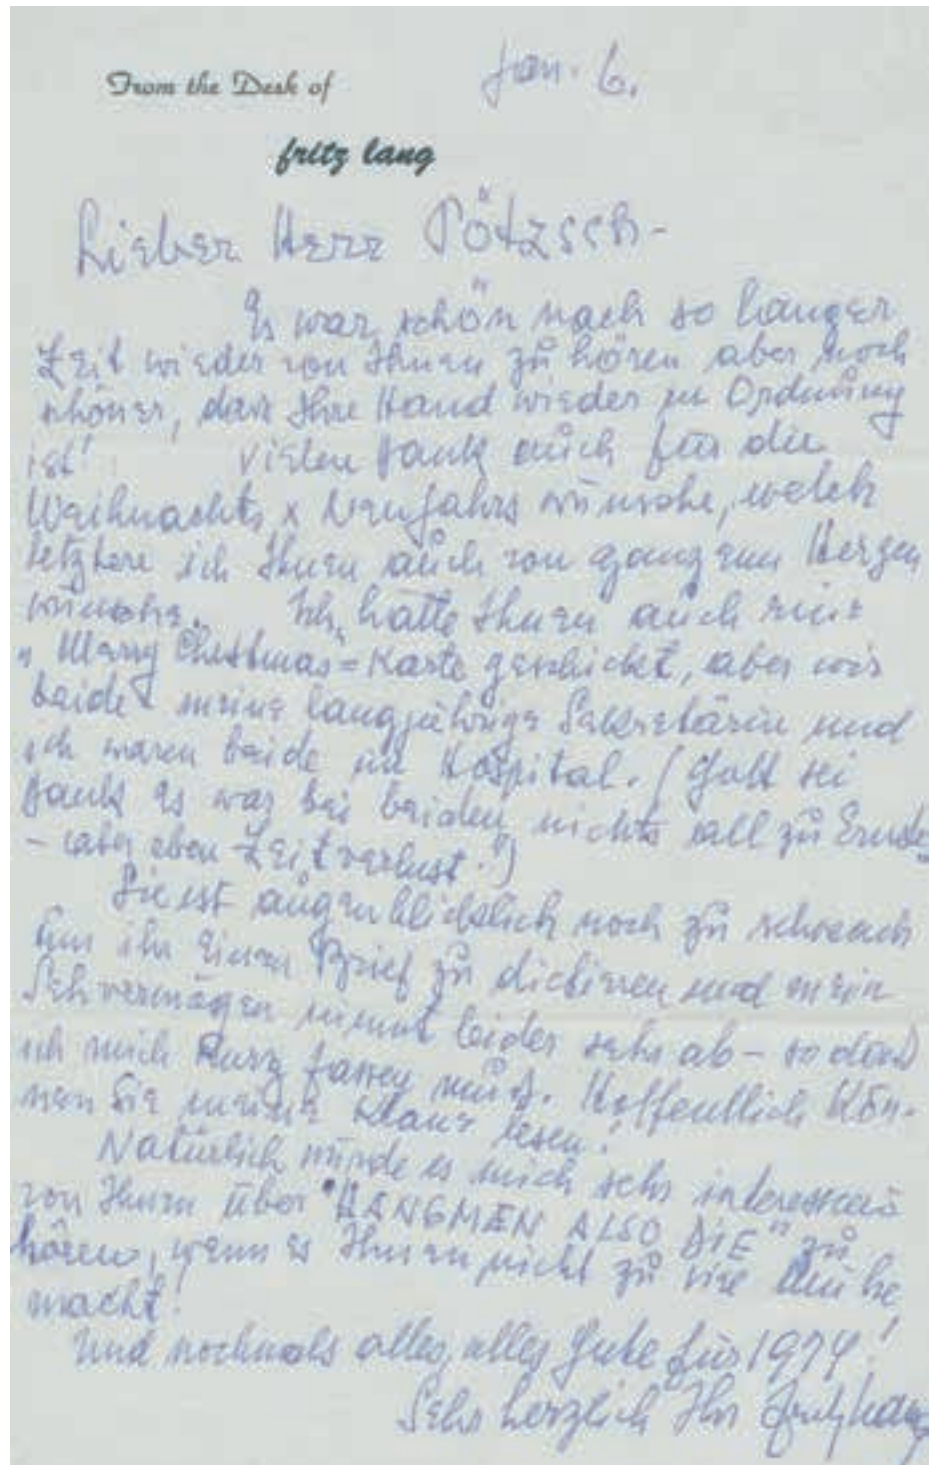 From the Desk of
Jan. 6.
fritz lang
Lieber Herr Pötzsch-
Es war schön nach so langer
Zeit wieder von Ihnen zu hören aber noch
schöner, dass Ihre Hand wieder in Ordnung
ist! Vielen Dank auch für die
Weihnachts & Neujahrs wünsche, welch
letztere ich Ihnen auch von ganzem Herzen
wünsche. Ich hatte Ihnen auch eine
"Merry Christmas=Karte geschickt, aber wir
beide meine langjährige Sekretärin und
ich waren beide im Hospital. (Gott sei
Dank es war bei beiden nichts all zu Ernstes
- aber eben Zeitverlust!)
Sie ist augenblicklich noch zu schwach
um ihr einen Brief zu dictieren und mein
Sehvermögen nimmt leider sehr ab - so dass
ich mich kurz fassen muß. Hoffentlich kön-
nen Sie meine Klaue lesen!
Natürlich würde es mich sehr interessieren
von Ihnen über "HANGMEN ALSO DIE" zu
hören, wenn es Ihnen nicht zu viel Mühe
macht!
Und nochmals alles, alles Gute für 1974!
Sehr herzlich Ihr Fritz Lang